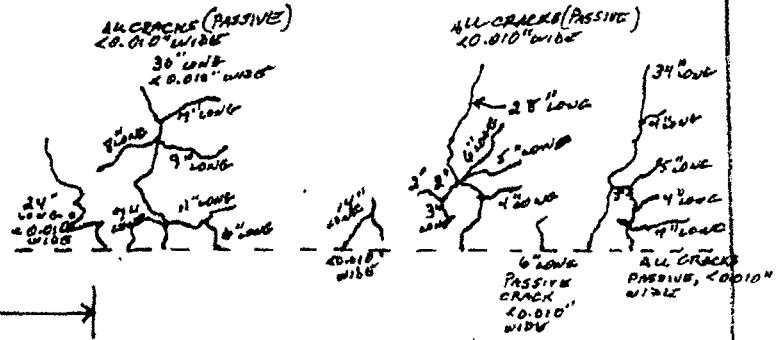 ALL CRACKS (PASSIVE)
<0.010" WIDE
30" LONG
<0.010" WIDE
7" LONG
8" LONG
9" LONG
24"
LONG
<0.010"
WIDE
11" LONG
6" LONG
14"
LONG
<0.010"
WIDE
ALL CRACKS (PASSIVE)
<0.010" WIDE
28" LONG
6" LONG
5" LONG
2"
2"
3"
LONG
4" LONG
6" LONG
PASSIVE
CRACK
<0.010"
WIDE
34" LONG
4" LONG
5" LONG
3"
4" LONG
4" LONG
ALL CRACKS
PASSIVE, <0.010"
WIDE